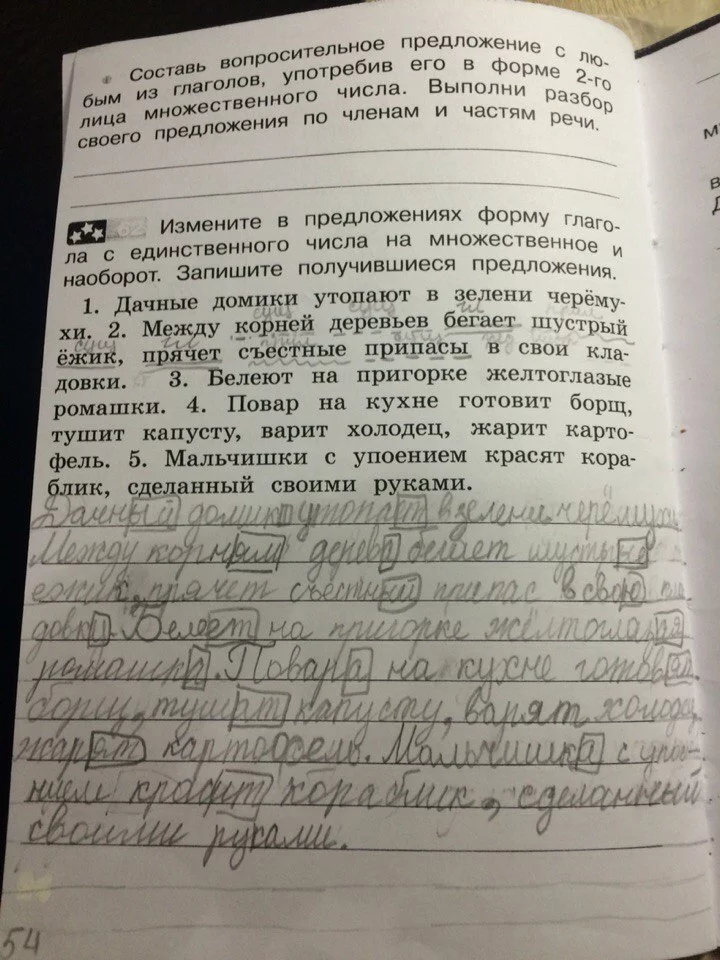 Составь вопросительное предложение с лю-
бым из глаголов, употребив его в форме 2-го
лица множественного числа. Выполни разбор
своего предложения по членам и частям речи.
Измените в предложениях форму глаго-
ла с единственного числа на множественное и
наоборот. Запишите получившиеся предложения.
1. Дачные домики утопают в зелени черёму-
хи. 2. Между корней деревьев бегает шустрый
ёжик, прячет съестные припасы в свои кла-
довки. 3. Белеют на пригорке желтоглазые
ромашки. 4. Повар на кухне готовит борщ,
тушит капусту, варит холодец, жарит карто-
фель. 5. Мальчишки с упоением красят кора-
блик, сделанный своими руками.
Дачный домик утопает в зелени черёмухи
Между корням дерева бегает
ежик, прячет съестный припас в свою кла
довки. Белеет на пригорке жёлтоглазая
ромашка. Повара на кухне готовят
борщ, тушат капусту, варят холодец,
жарят картофель. Мальчишка с упое-
нием красит кораблик, сделанный
своими руками.
54